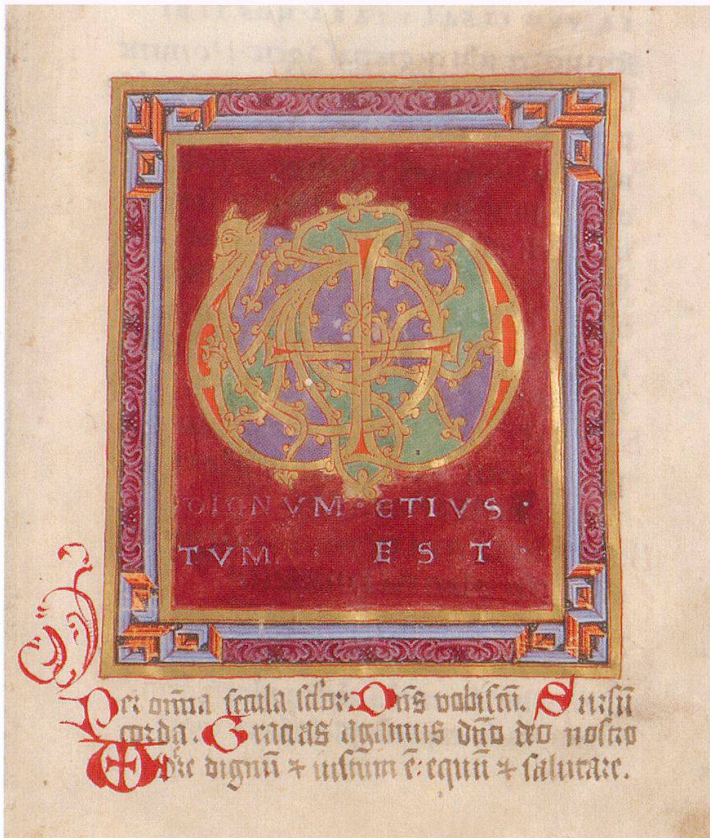 VD
DIGNVM · ETIVS ·
TVM EST ·
Per om̅ia secula sc̅lor. Dn̅s vobiscu̅. Sursu̅
corda. Gracias agamus dn̅o deo nostro
Ve̅re dignu̅ ⁊ iustum e̅: equu̅ ⁊ salutare.